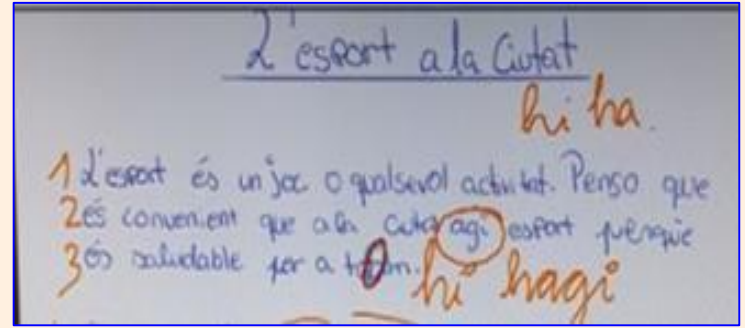 L'esport a la Ciutat
hi ha.
1 L'esport és un joc o qualsevol activitat. Penso que
2 és convenient que a la ciutat agi esport perquè
3 és saludable per a tothom.
hi hagi